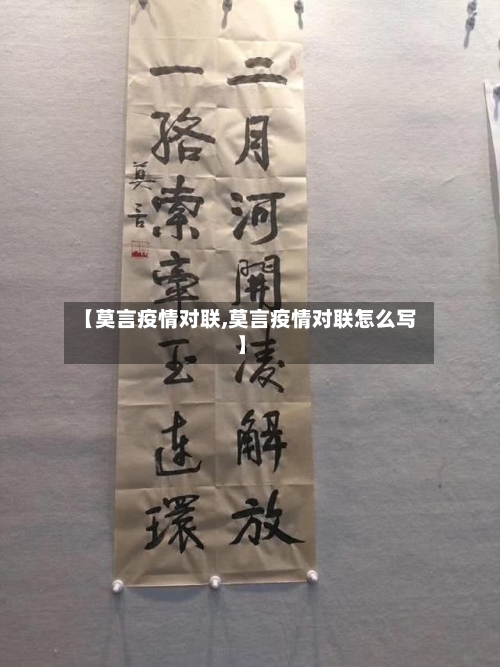 二月河開凌解放
一路索牽玉連環
莫言
【莫言疫情对联,莫言疫情对联怎么写
】